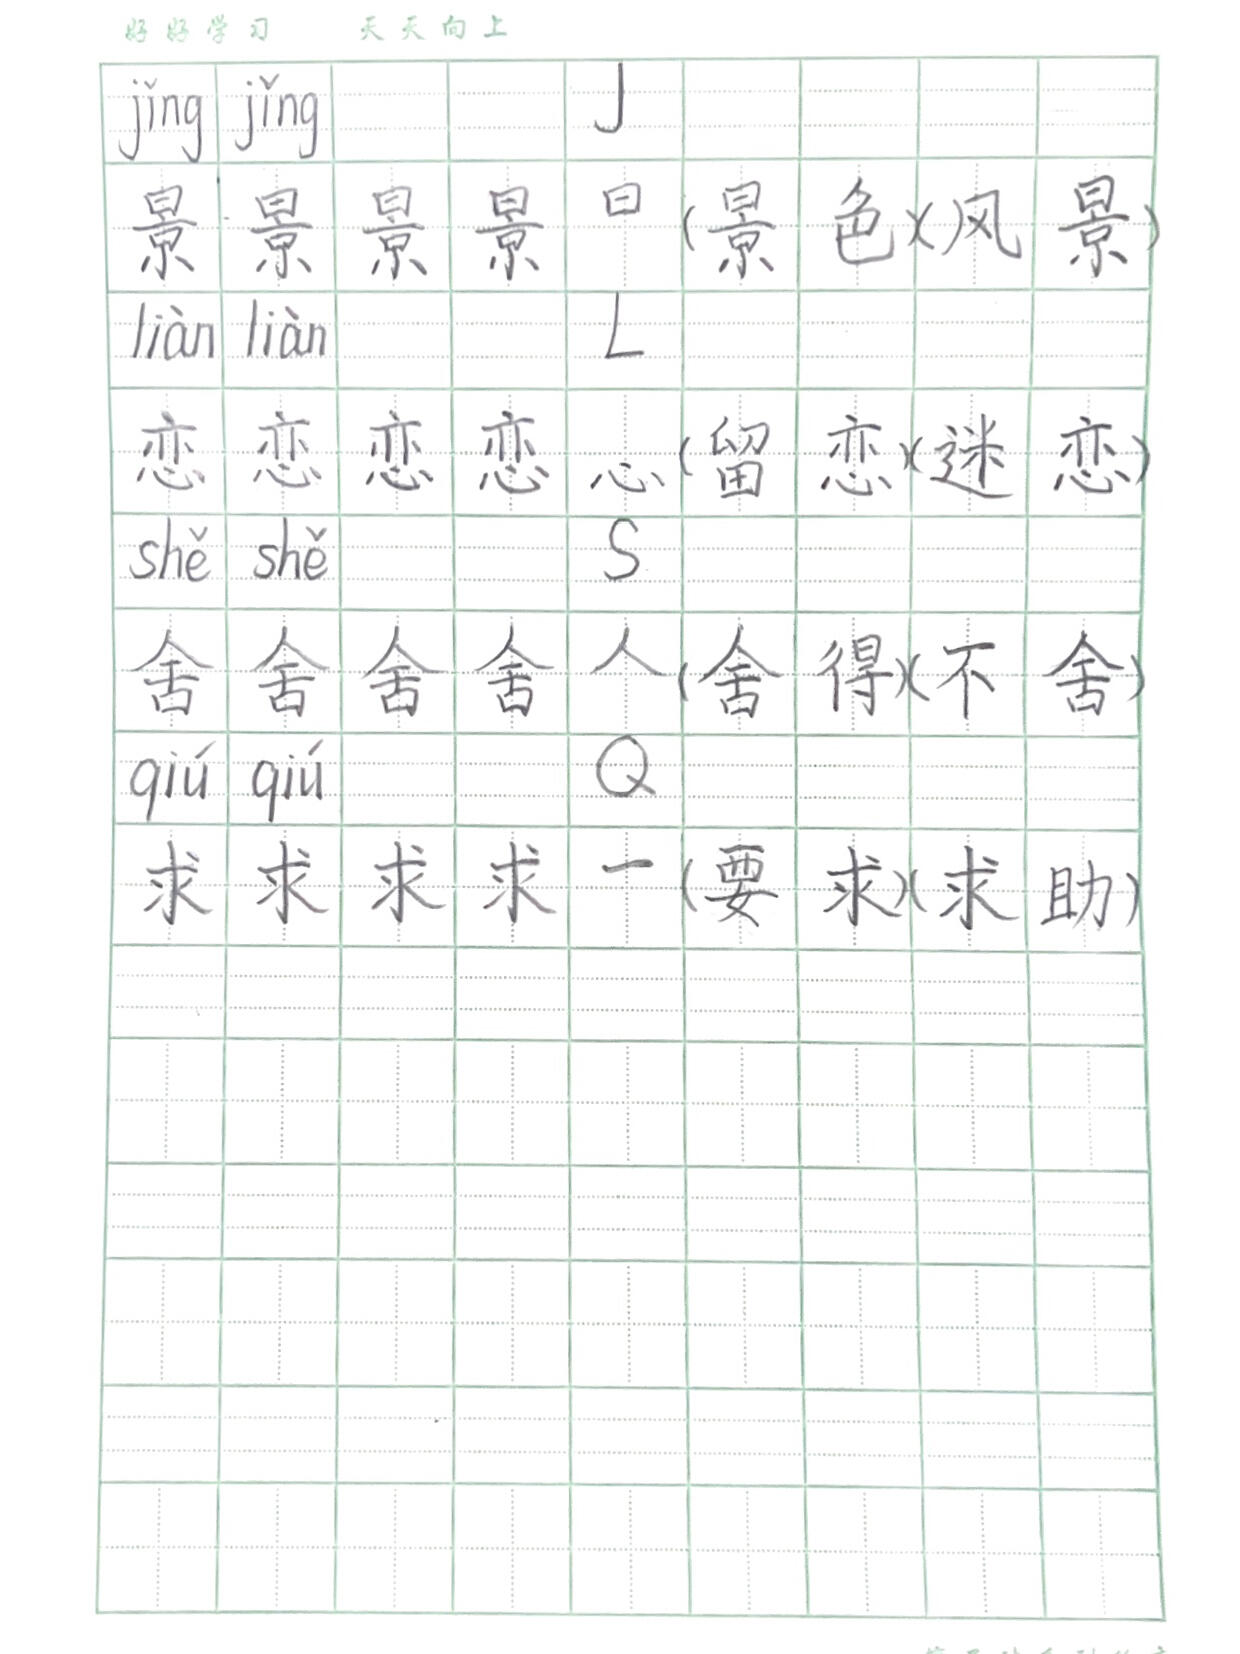 好好学习 天天向上
jǐng jǐng J
景 景 景 景 日 (景色)(风景)
liàn liàn L
恋 恋 恋 恋 心 (留恋)(迷恋)
shě shě S
舍 舍 舍 舍 人 (舍得)(不舍)
qiú qiú Q
求 求 求 求 一 (要求)(求助)